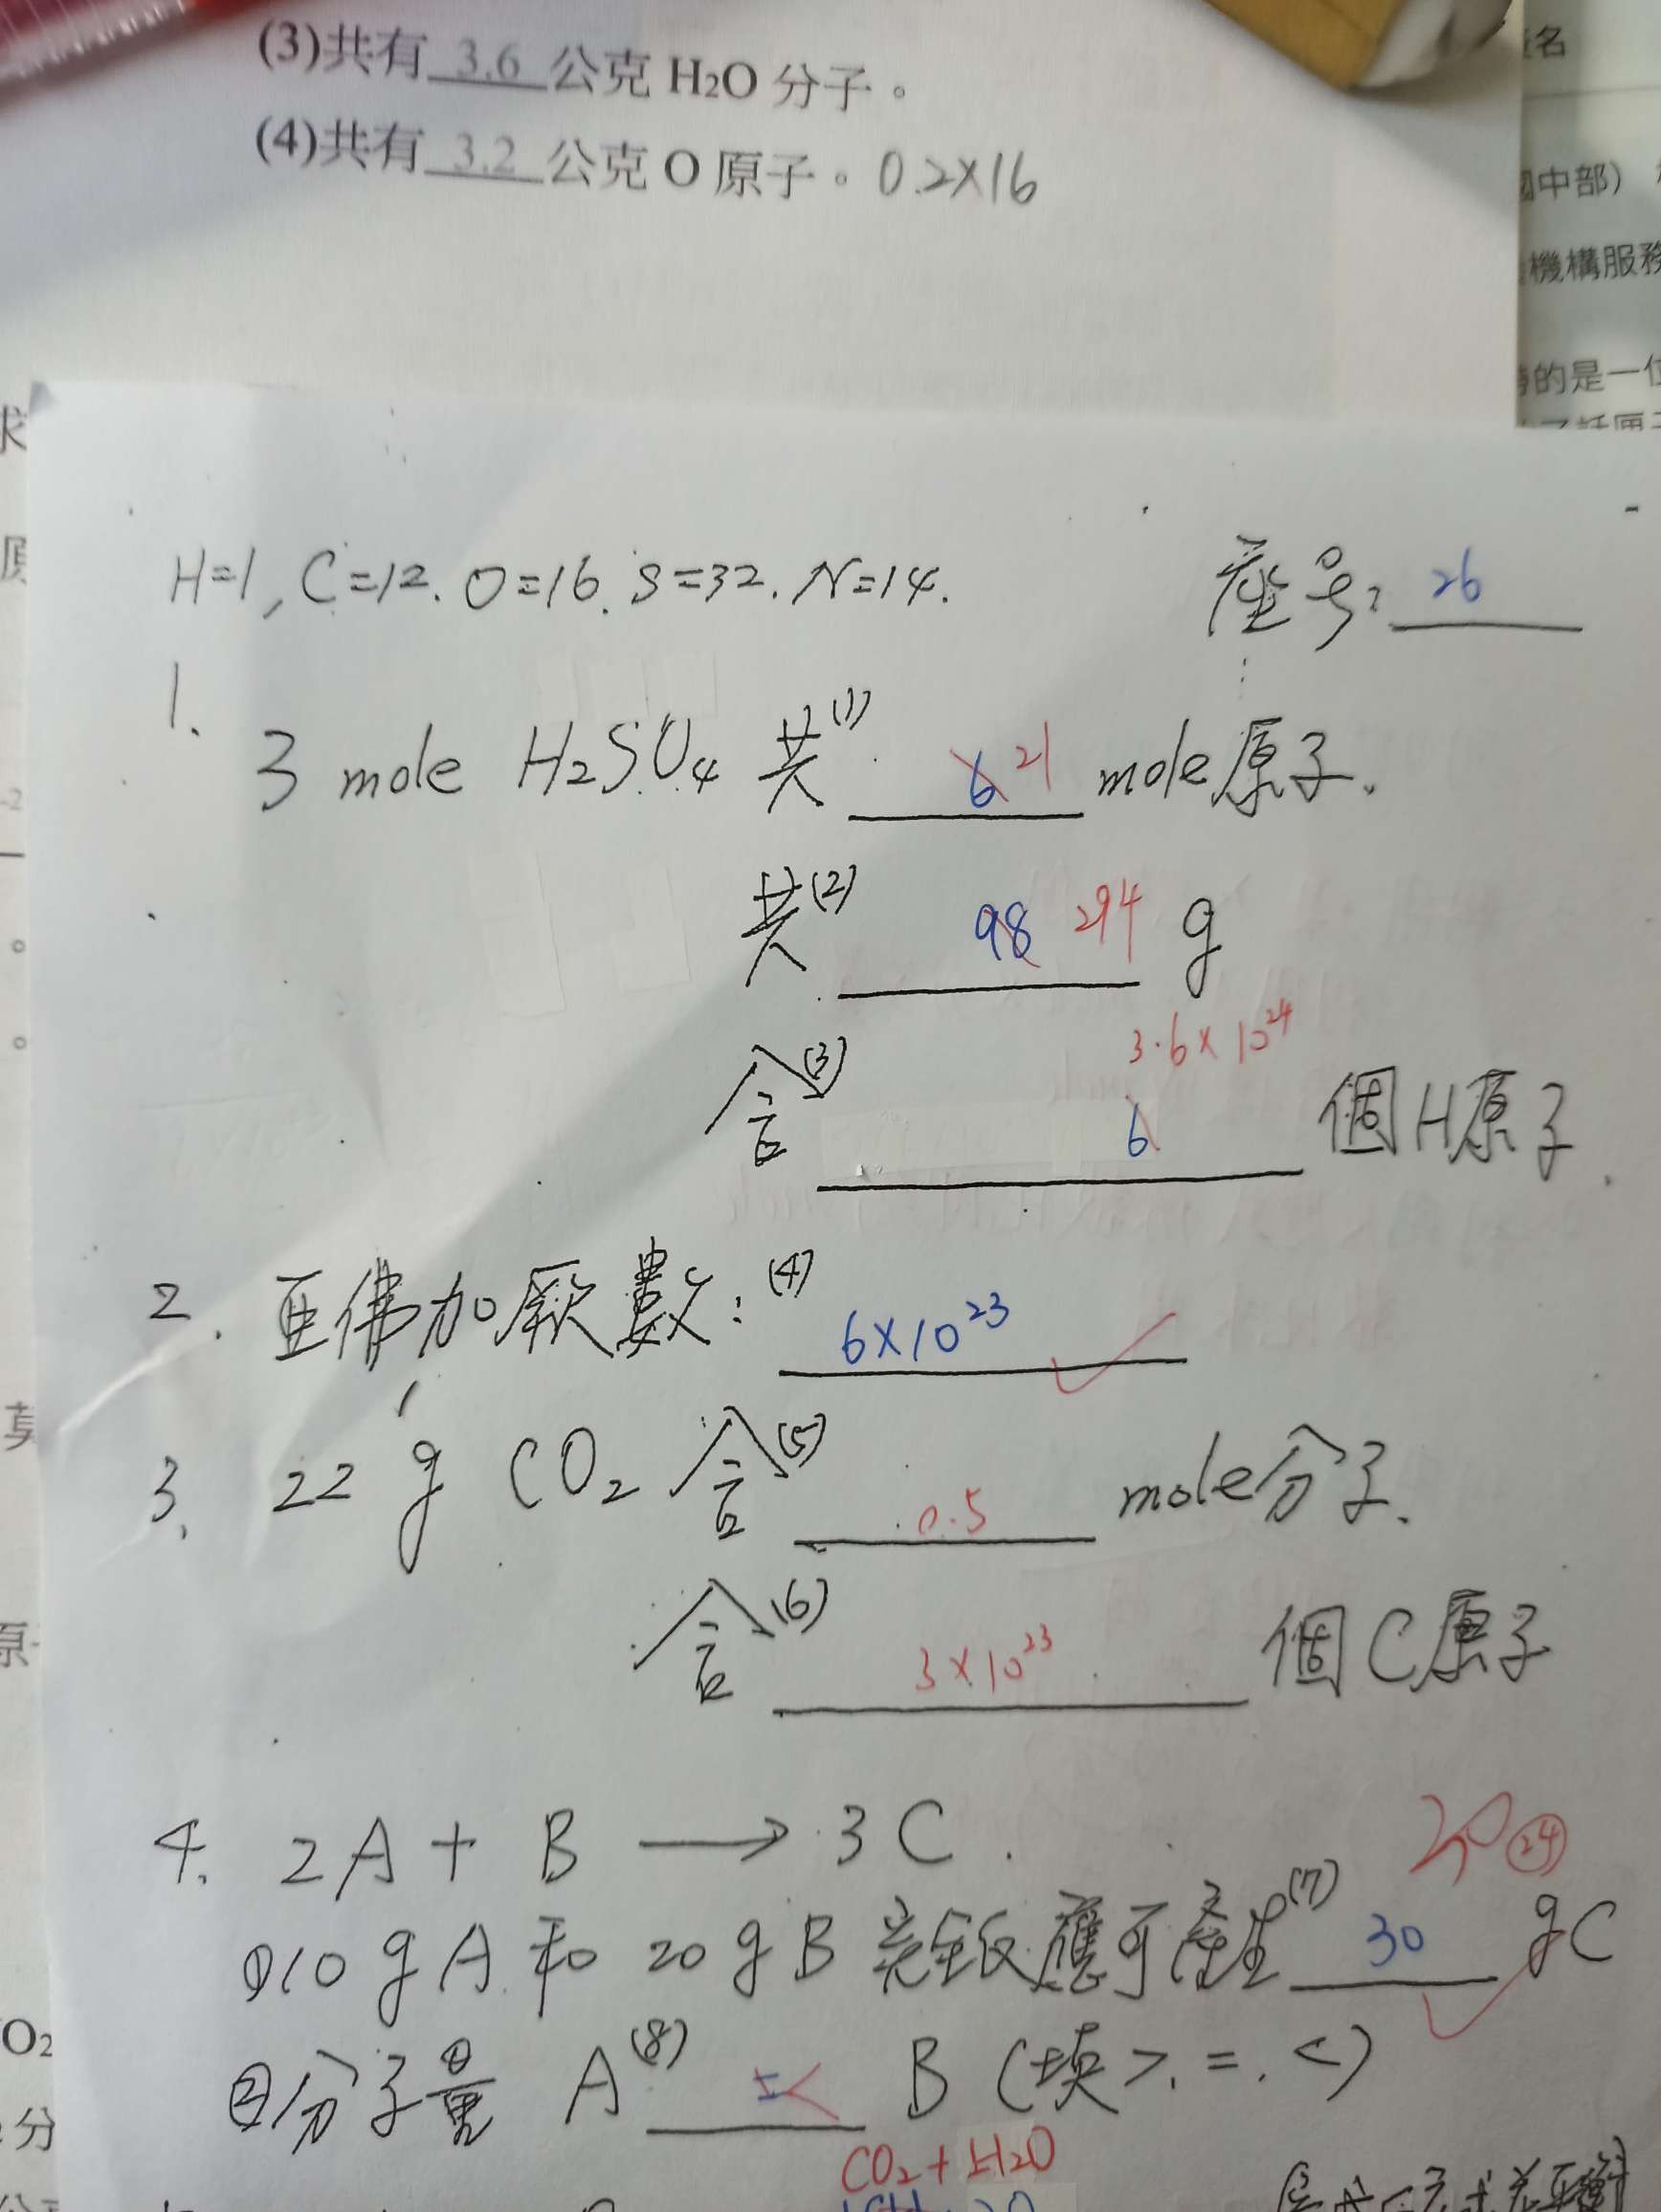 (3)共有 3.6 公克 H₂O 分子。
(4)共有 3.2 公克 O 原子。 0.2×16
國中部）
機構服務
的是一位
H=1, C=12. O=16. S=32. N=14. 座号: 26
1.
3 mole H₂SO₄ 共(1) 6 21 mole原子.
共(2) 98 294 g
3.6×10²⁴
含(3) 6 個H原子.
2. 亜佛加厥數:(4) 6×10²³
3. 22 g CO₂ 含(5) 0.5 mole分子.
含(6) 3×10²³ 個C原子
4. 2A + B → 3C. 20 24
①10 g A 和 20 g B 完全反應可產生(7) 30 gC
②分子量 A(8) = < B (填 >. =. <)
CO₂ + H₂O